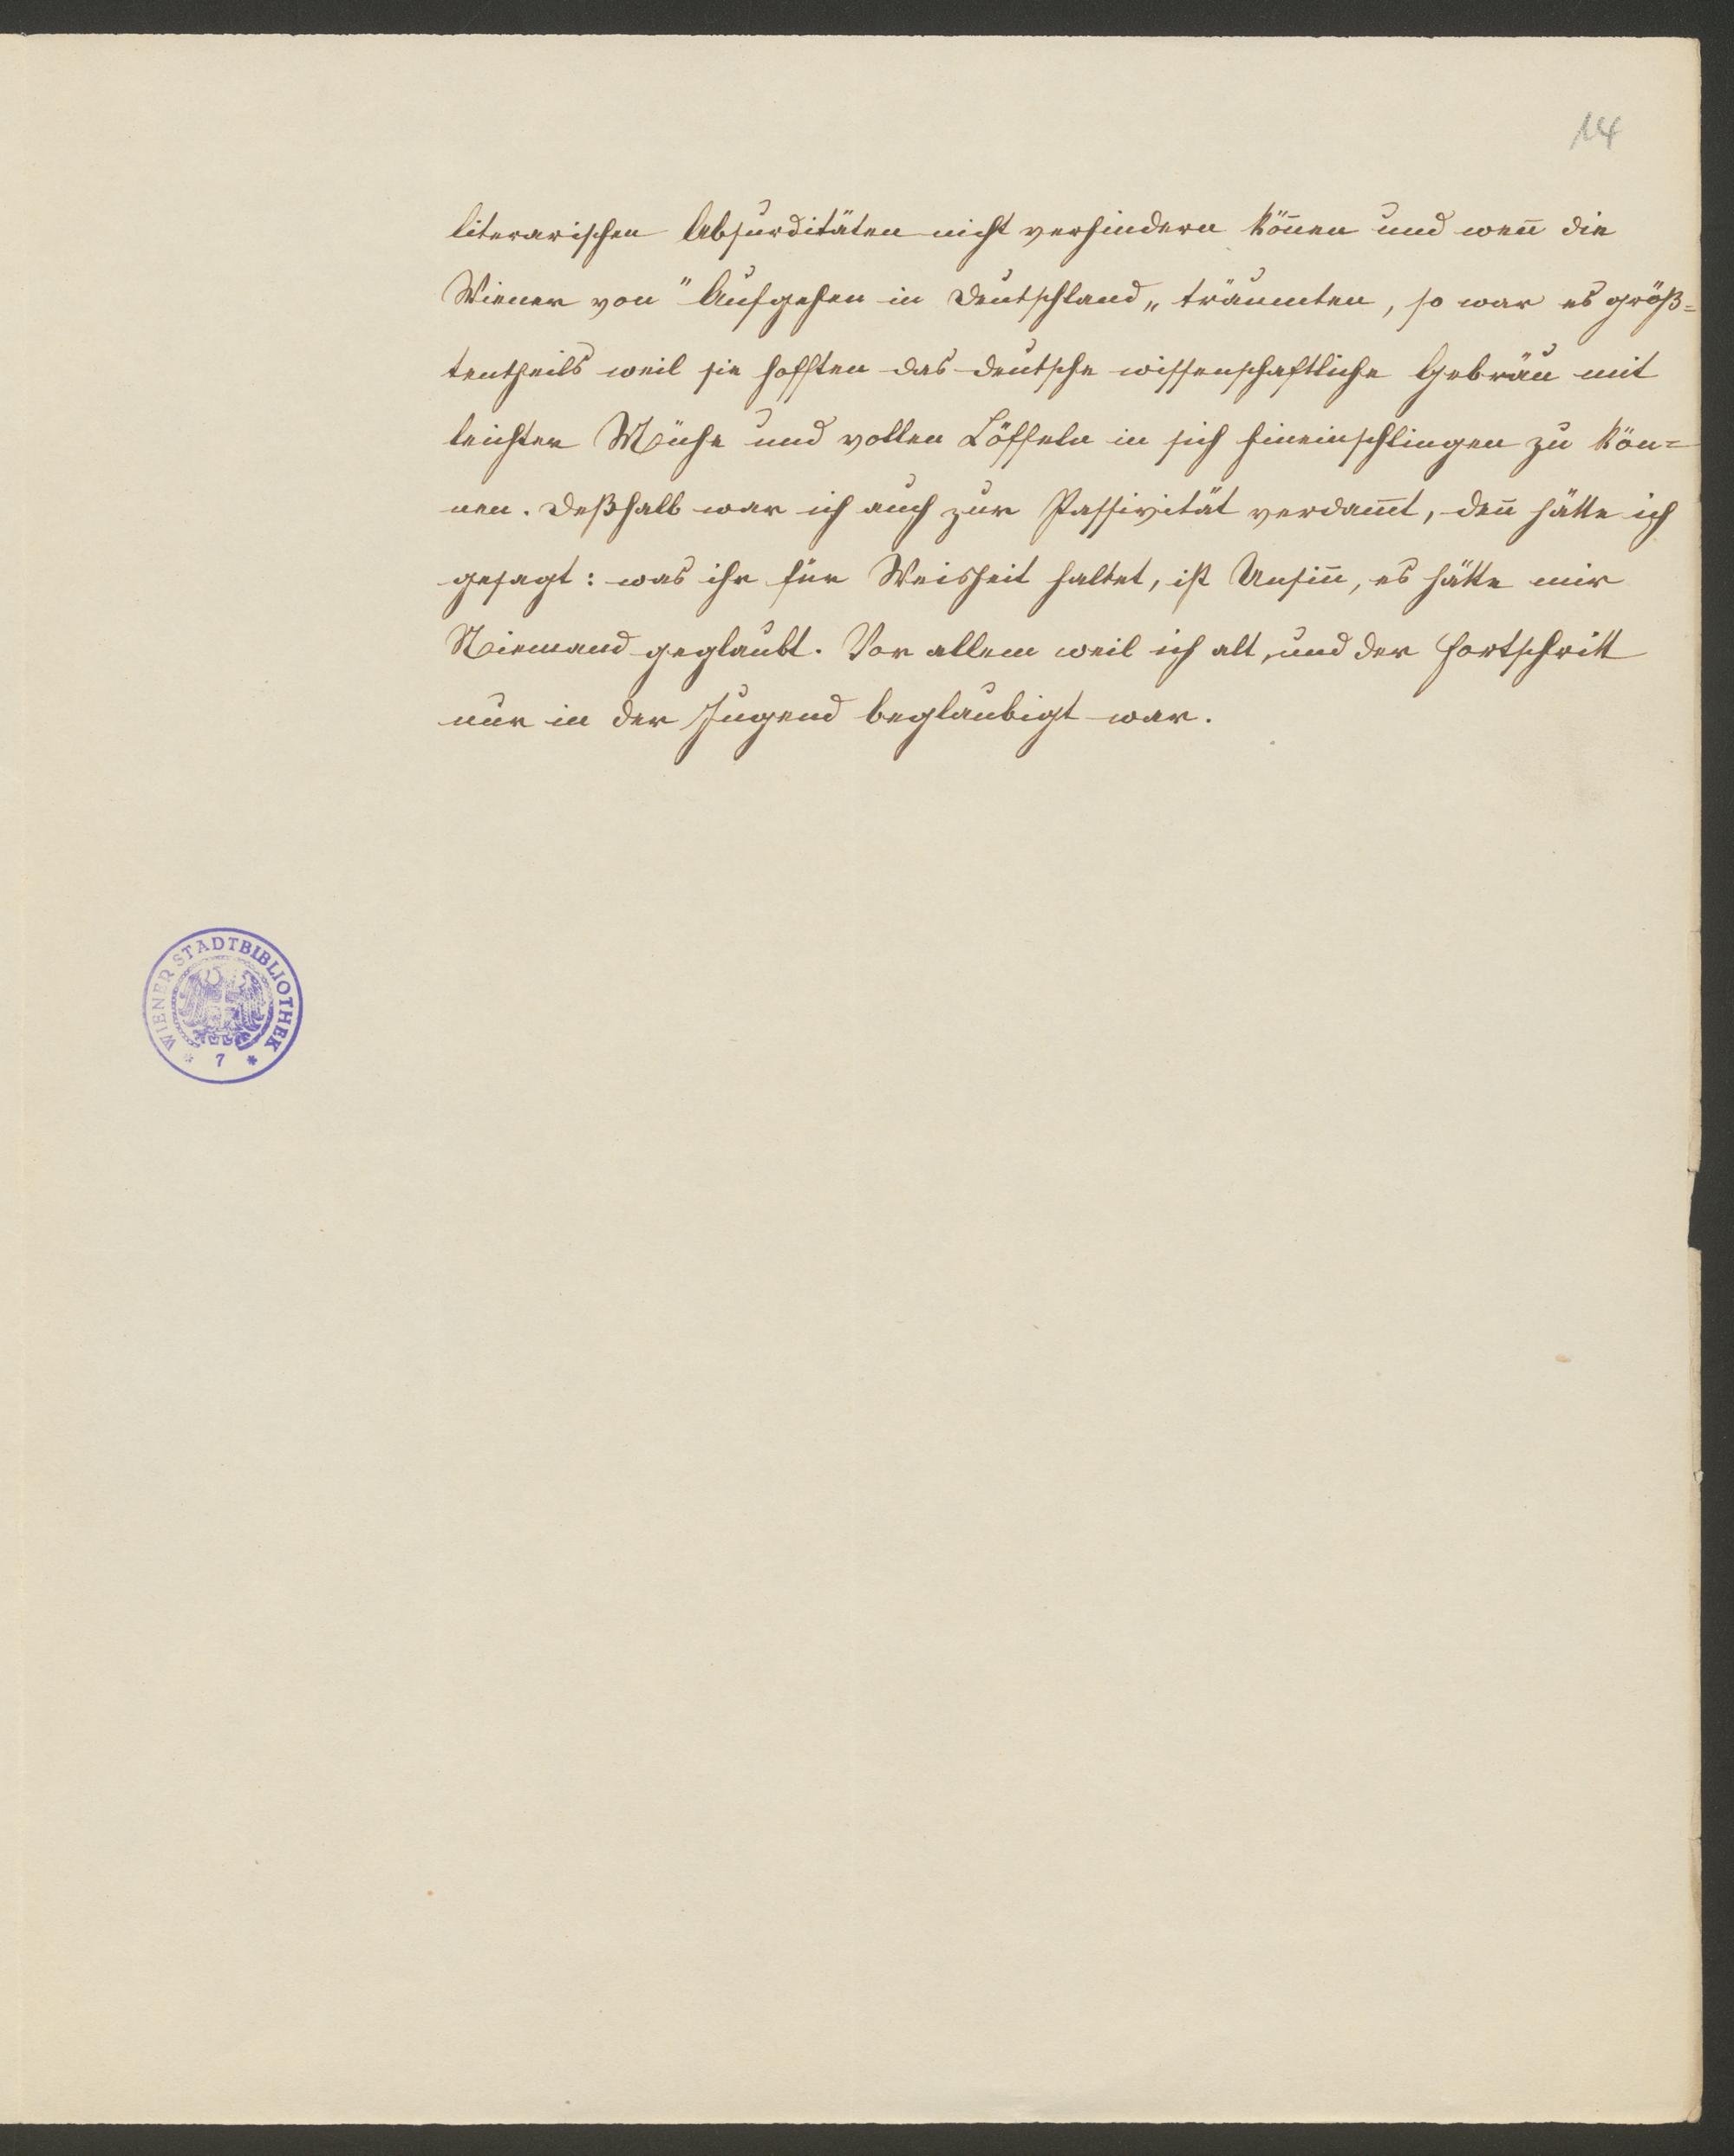 14
literarischen Absurditäten nicht verhindern kön̄en und wen̄ die
Wiener von "Aufgehen in Deutschland„ träumten, so war es größ=
tentheils weil sie hofften das deutsche wissenschaftliche Gebräu mit
leichter Mühe und vollen Löffeln in sich hineinschlingen zu kön=
nen. Deßhalb war ich auch zur Passivität verdam̄t, den̄ hätte ich
gesagt: was ihr für Weisheit haltet, ist Unsin̄, es hätte mir
Niemand geglaubt. Vor allem weil ich alt, und der Fortschritt
nur in der Jugend beglaubigt war.
WIENER STADTBIBLIOTHEK
* 7 *